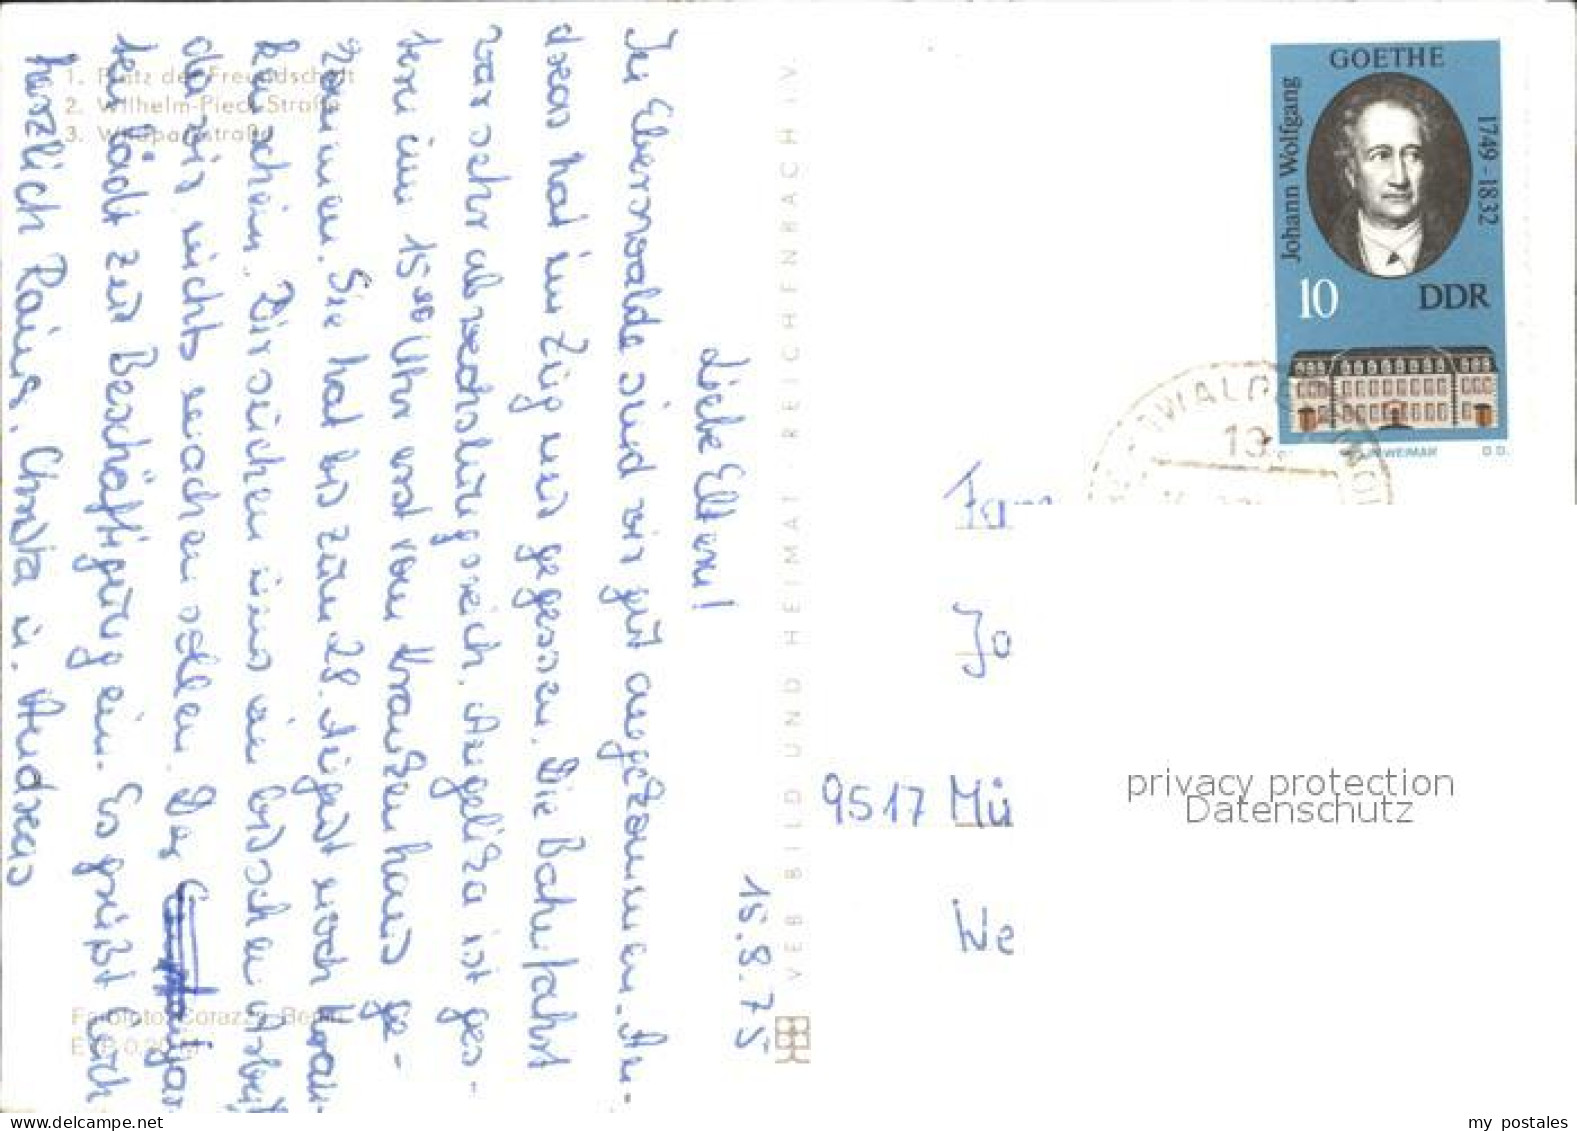 1. Platz der Freundschaft
2. Wilhelm-Pieck-Straße
3. Wildparkstraße
15.8.75
Liebe Eltern!
In Eberswalde sind wir gut angekommen. An-
dreas hat im Zug nur gegessen. Die Bahnfahrt
war sehr abwechslungsreich. Angelika ist ges-
tern um 15⁰⁰ Uhr erst vom Krankenhaus ge-
kommen. Sie hat bis zum 28. August noch Kran-
kenschein. Wir suchen uns ein bisschen Arbeit
da wir nichts machen sollen. Der
ten lädt zur Beschäftigung ein. Es grüßt Euch
herzlich Rainer, Christa u. Andreas
Farbfoto: Corazza, Berlin
EVP 0,20 M
VEB BILD UND HEIMAT REICHENBACH I.V.
GOETHE
Johann Wolfgang
1749-1832
10
DDR
WEIMAR
D D.
WALDE
Fam
Jo
9517 Mü
We
privacy protection
Datenschutz
www.delcampe.net
my postales